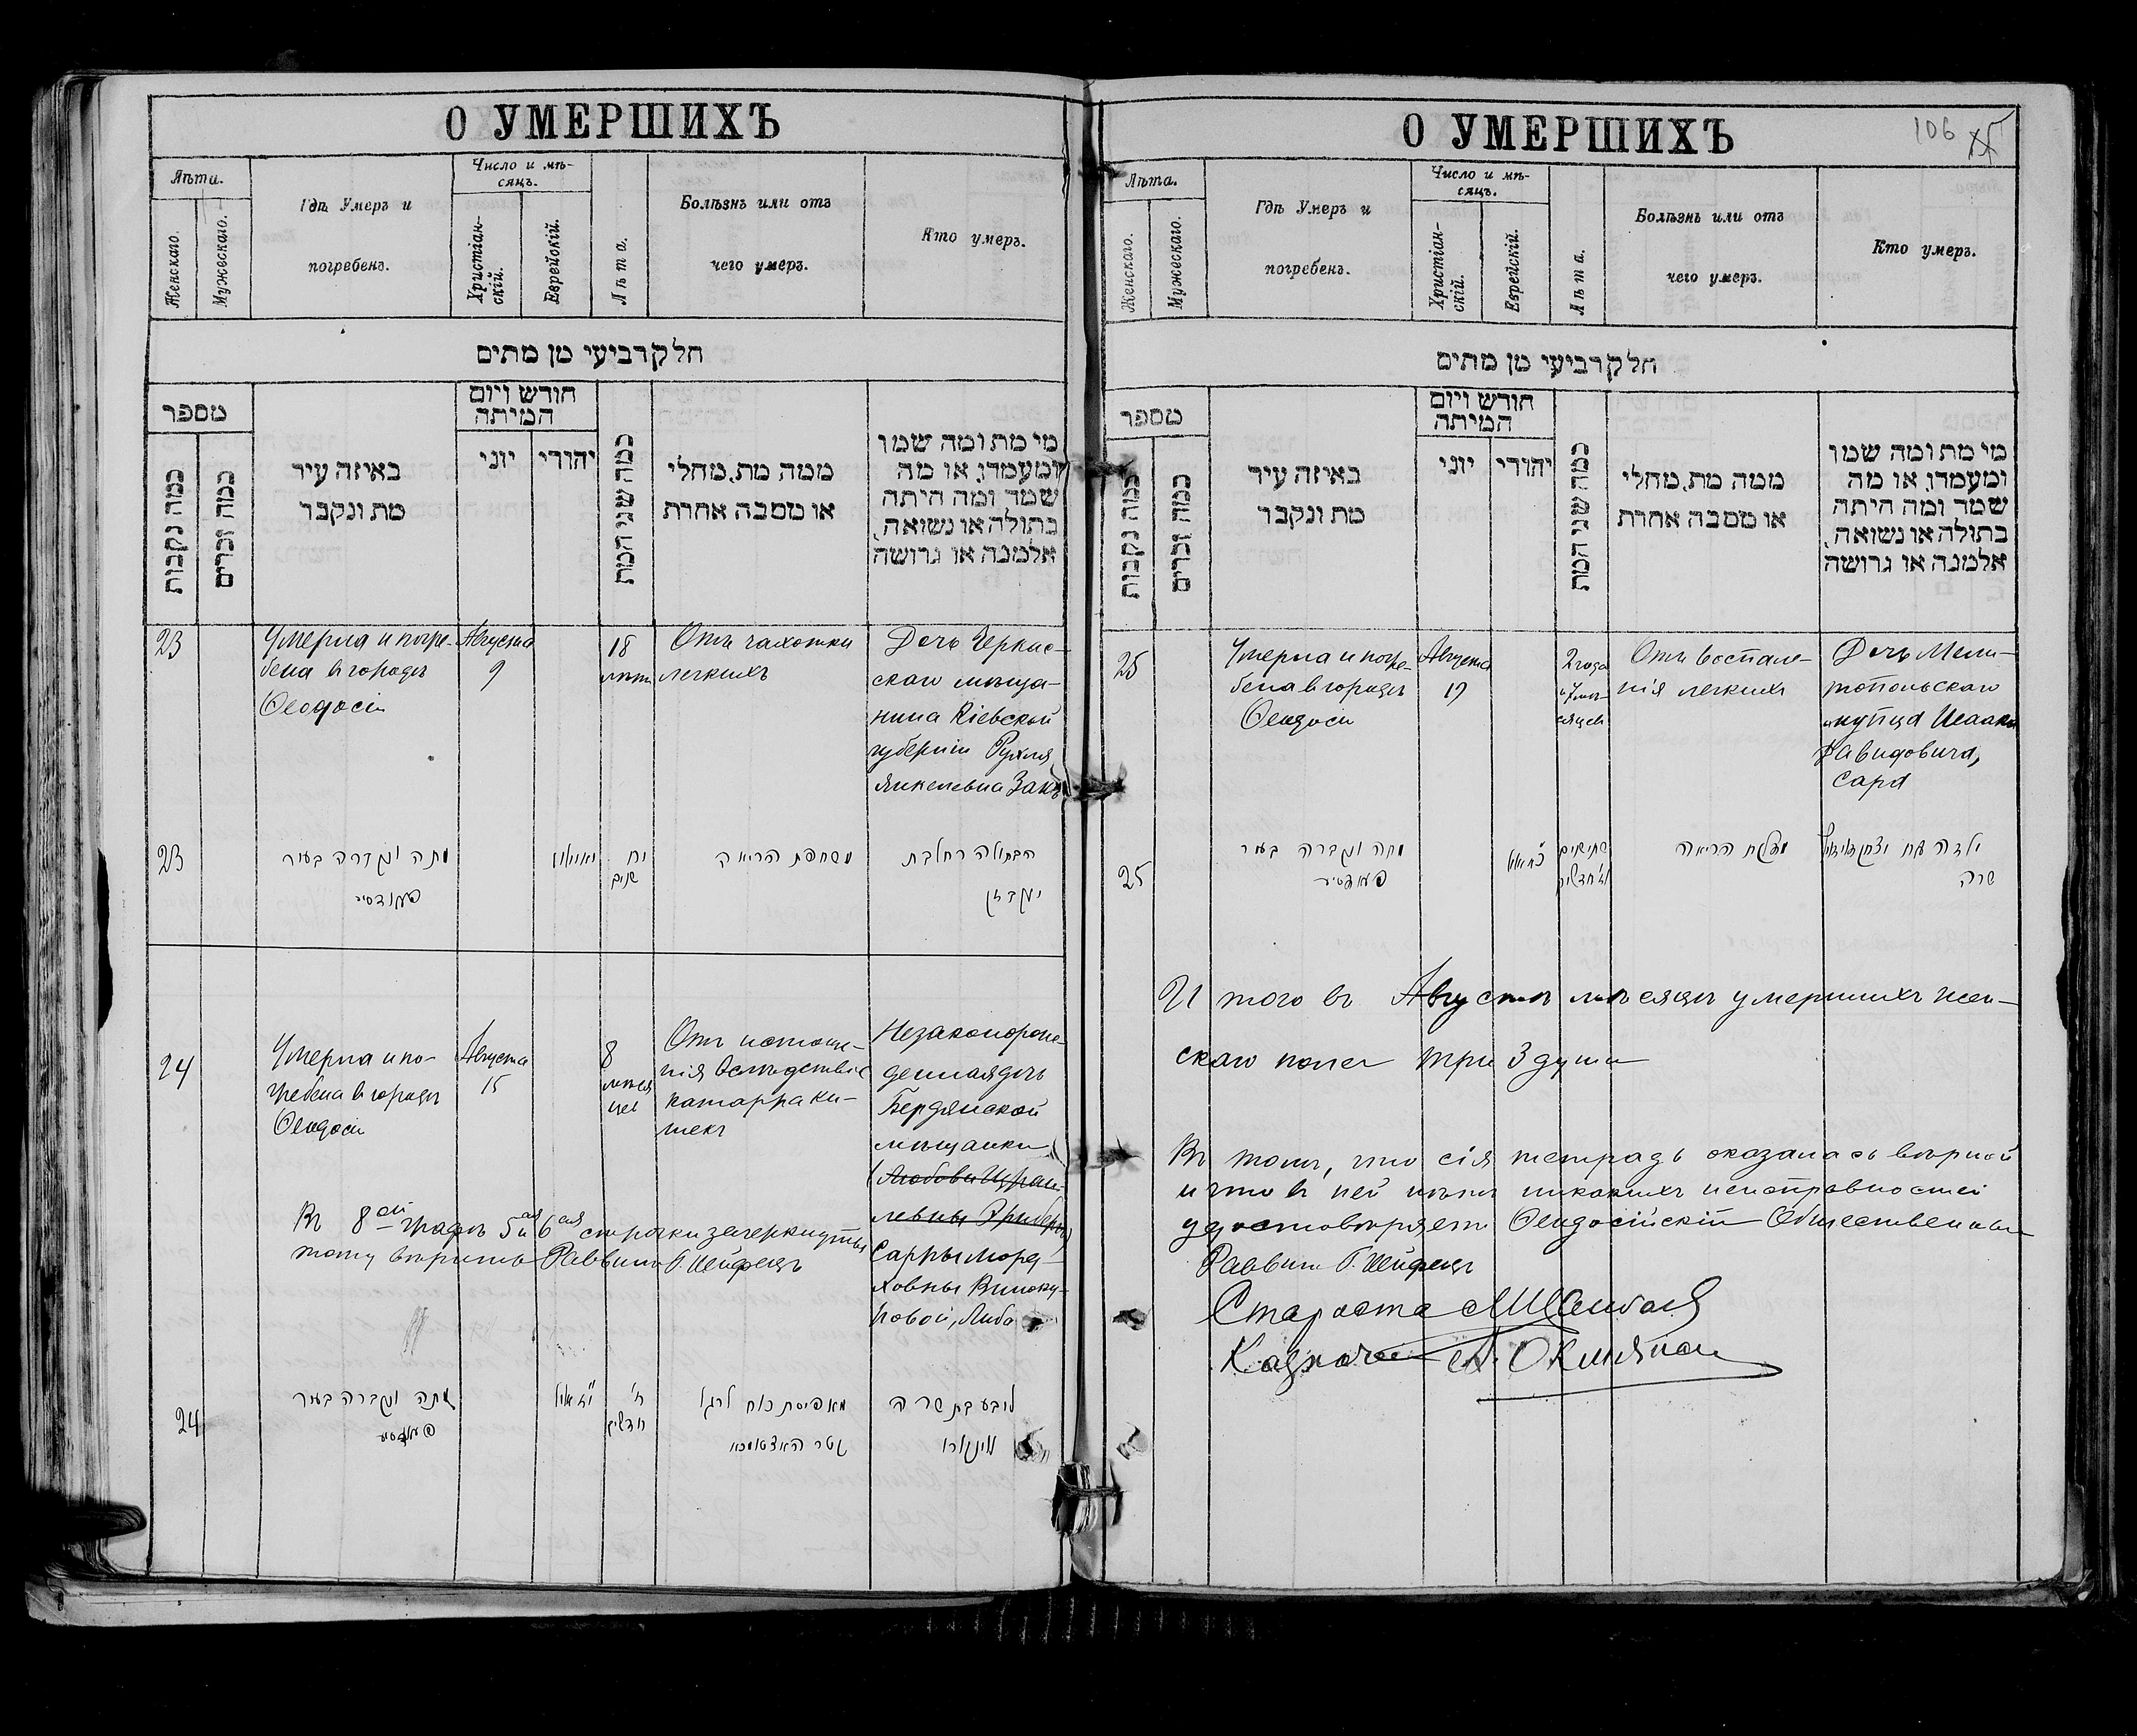 О УМЕРШИХЪ
Лѣта.
Женскаго.
Мужескаго.
Гдѣ Умеръ и
погребенъ.
Число и мѣ-
сяцъ.
Христіан-
скій.
Еврейскій.
Лѣта.
Болѣзнь или отъ
чего умеръ.
Кто умеръ.
חלק רביעי מן מתים
מספר
כמה נקבות
כמה זכרים
באיזה עיר
מת ונקבר
חודש ויום
המיתה
יוני
יהודי
כמה שני המת
ממה מת, מחלי
או מסבה אחרת
מי מת ומה שמו
ומעמדו, או מה
שמה ומה היתה
בתולה או נשואה,
אלמנה או גרושה
23
Умерла и погре-
бена въ городѣ
Ѳеодосіи
Августа
9
18
лѣтъ
Отъ чахотки
легкихъ
Дочь Черкас-
скаго мѣща-
нина Кіевской
губерніи Рухля
Янкелевна Закъ
23
מתה ונקברה בעיר
יח
שנים
משחפת הריאה
הבתולה רחל בת
יעקב זק
24
Умерла и по-
гребена въ городѣ
Ѳеодосіи
Августа
15
8
мѣся
цев
Отъ истоще-
нія вслѣдствіе
катарра ки-
шекъ
Незаконорож-
денная дочь
Бердянской
мѣщанки
(Любови Израи-
левны
Сарры Морд-
ховны Виноку-
ровой, Либа
Въ 8ой графѣ 5ая и 6ая строчки зачеркнутыя
тому вѣрить Раввинъ Г. Шейфецъ
24
מתה ונקברה בעיר
ח'
חדשים
מאפיסת כוח לרגל
לובע בת שרה
106
О УМЕРШИХЪ
Лѣта.
Женскаго.
Мужескаго.
Гдѣ Умеръ и
погребенъ.
Число и мѣ-
сяцъ.
Христіан-
скій.
Еврейскій.
Лѣта.
Болѣзнь или отъ
чего умеръ.
Кто умеръ.
חלק רביעי מן מתים
מספר
כמה נקבות
כמה זכרים
באיזה עיר
מת ונקבר
חודש ויום
המיתה
יוני
יהודי
כמה שני המת
ממה מת, מחלי
או מסבה אחרת
מי מת ומה שמו
ומעמדו, או מה
שמה ומה היתה
בתולה או נשואה,
אלמנה או גרושה
25
Умерла и погре-
бена въ городѣ
Ѳеодосіи
Августа
19
2 года
и 7 мѣ-
сяцев
Отъ воспале-
нія легкихъ
Дочь Мели-
топольскаго
купца Исаака
Давидовича,
Сара
25
מתה ונקברה בעיר
שתי שנים
וז' חדשים
הריאה
ילדה
שרה
И того въ Августѣ мѣсяцѣ умершихъ жен-
скаго пола три 3 души
Въ томъ, что сія тетрадь оказалась вѣрной
и что въ ней нѣтъ никакихъ неисправностей
удостовѣряетъ Ѳеодосійскій Общественный
Раввинъ Г. Шейфецъ
Староста
Казначей